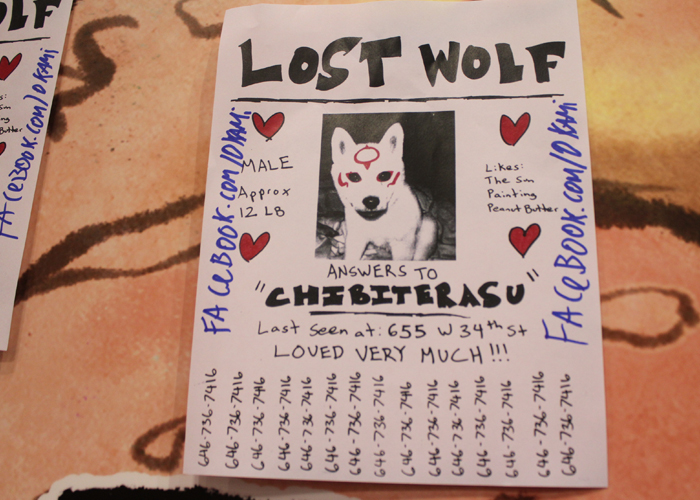 LOST WOLF
MALE
Approx
12 LB
Likes:
The Sun
Painting
Peanut Butter
FACEBOOK.com/OKAMI
FACEBOOK.com/OKAMI
ANSWERS TO
"CHIBITERASU"
Last seen at: 655 W 34th St
LOVED VERY MUCH!!!
646-736-7416
646-736-7416
646-736-7416
646-736-7416
646-736-7416
646-736-7416
646-736-7416
646-736-7416
646-736-7416
646-736-7416
646-736-7416
646-736-7416
646-736-7416
646-736-7416
646-736-7416
FACEBOOK.com/OKAMI